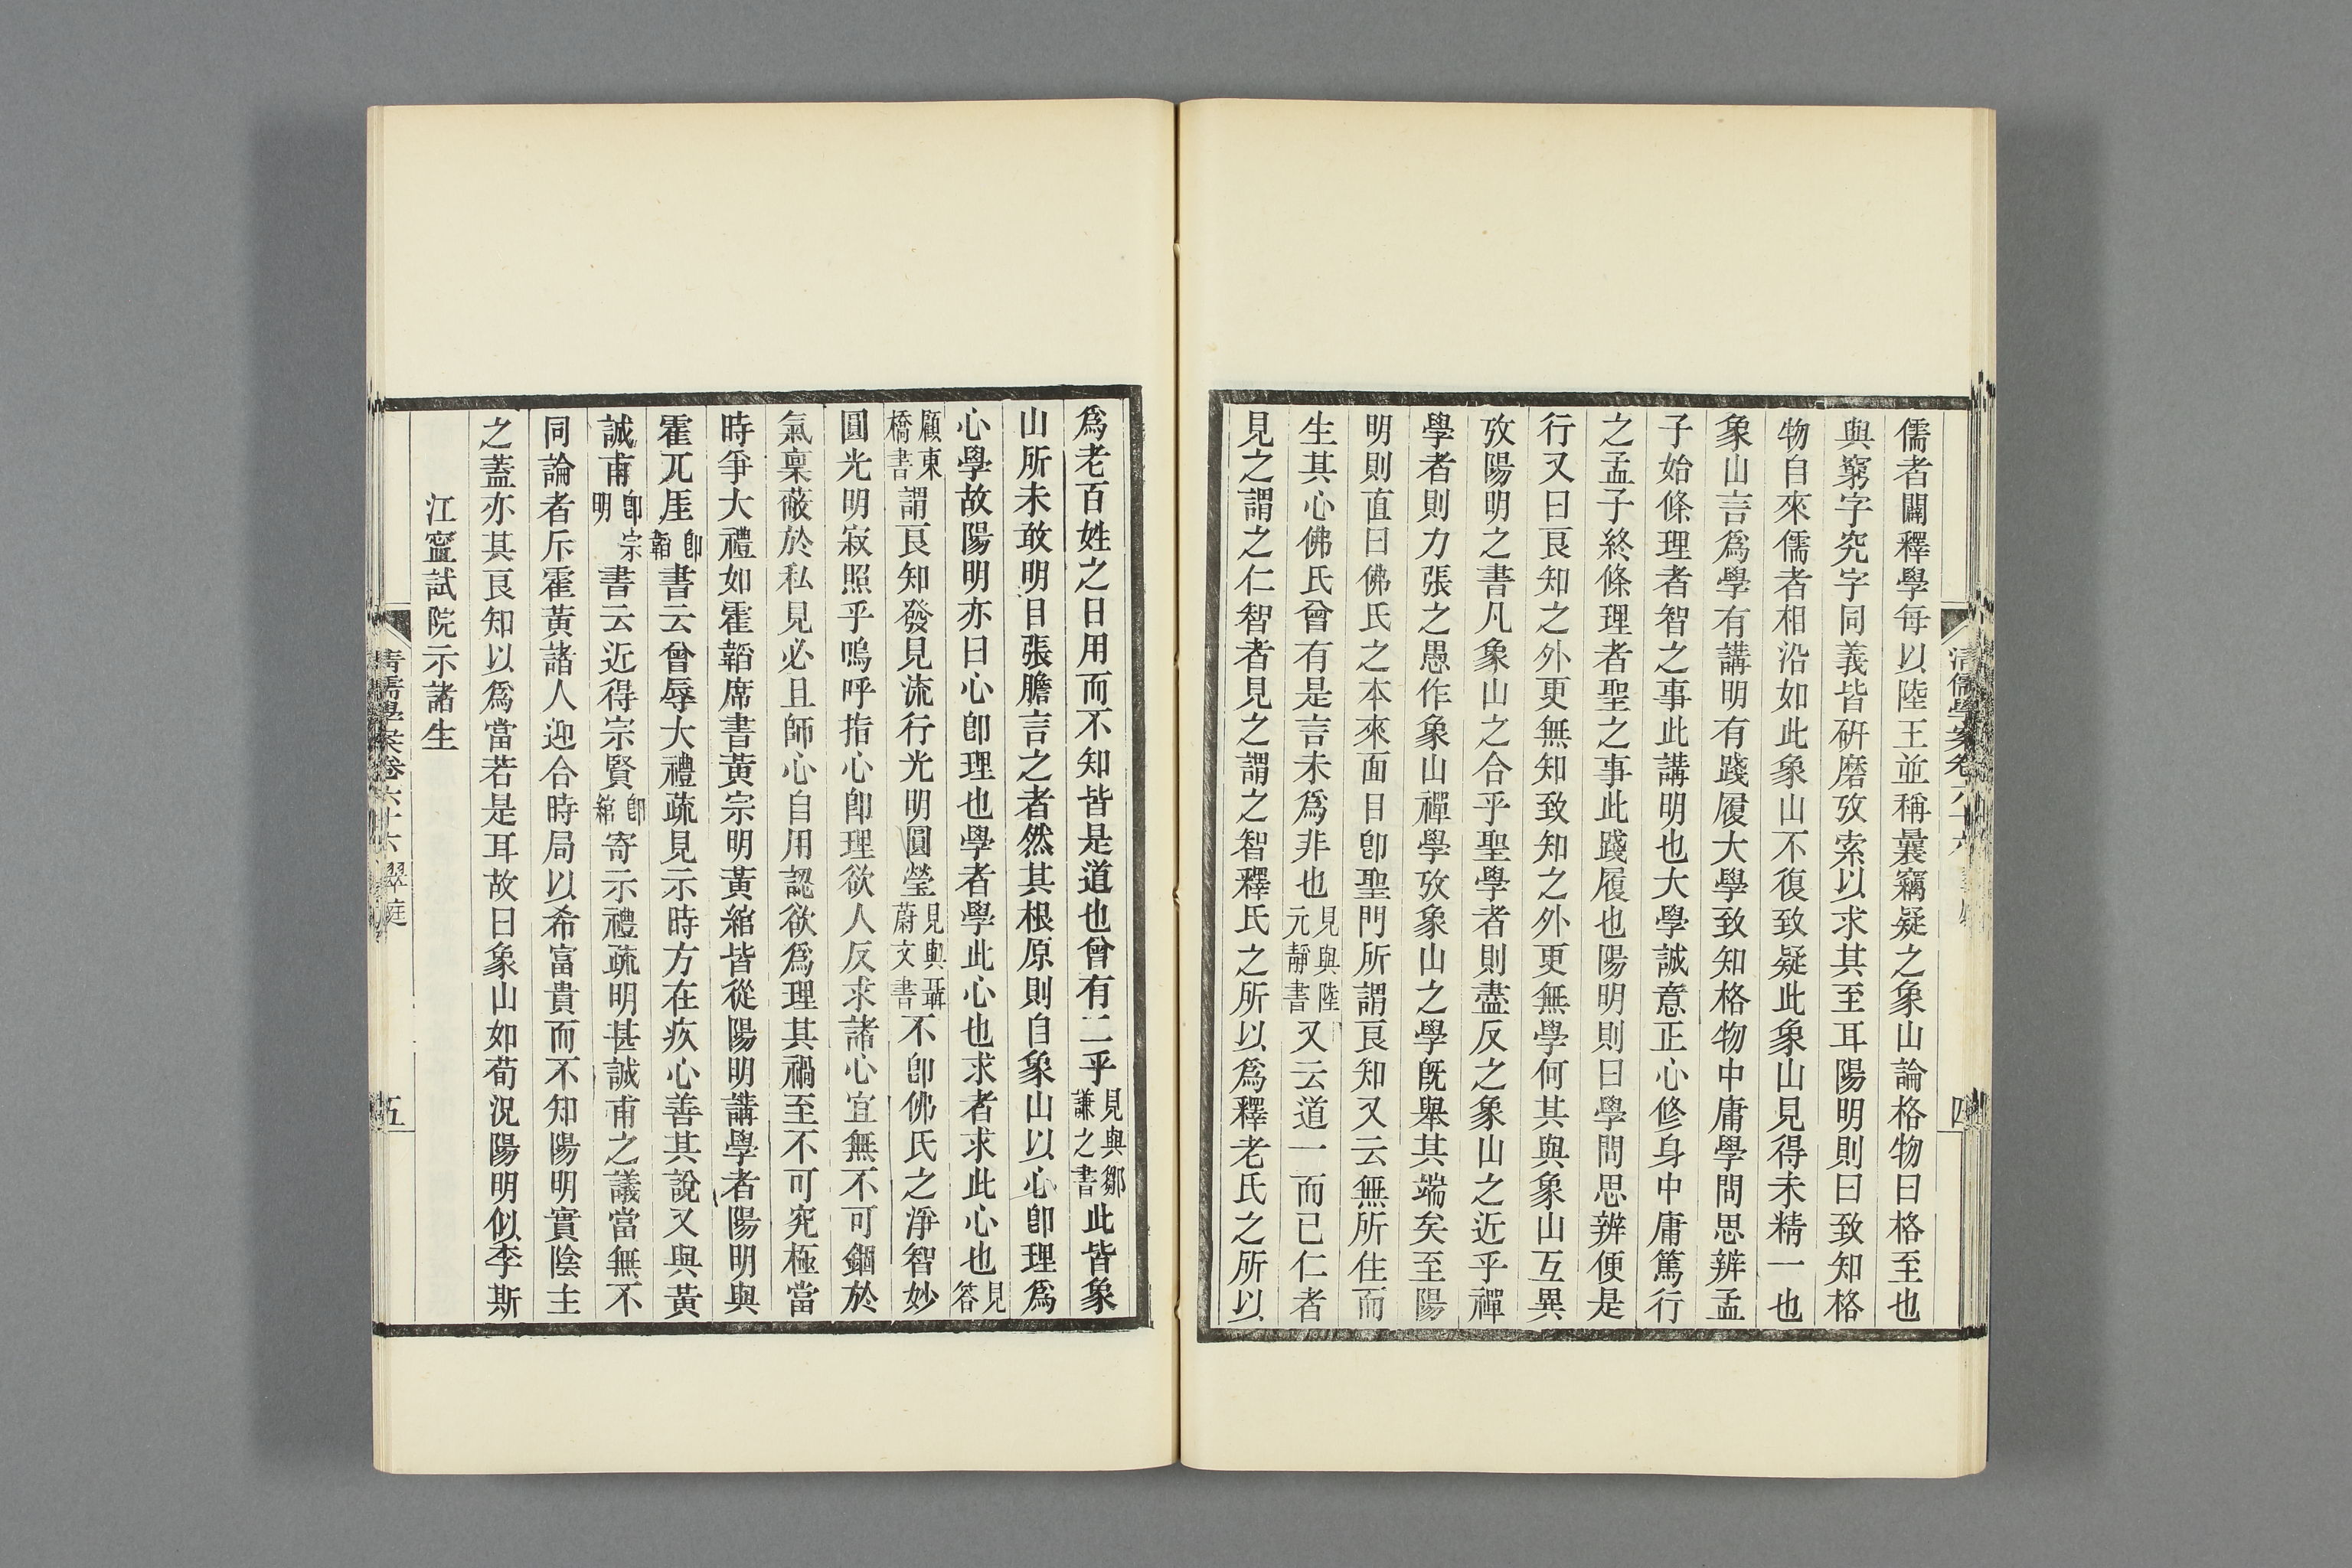 儒者闢釋學每以陸王並稱曩竊疑之象山論格物曰格至也
與窮字究字同義皆硏磨攷索以求其至耳陽明則曰致知格
物自來儒者相沿如此象山不復致疑此象山見得未精一也
象山言爲學有講明有踐履大學致知格物中庸學問思辨孟
子始條理者智之事此講明也大學誠意正心修身中庸篤行
之孟子終條理者聖之事此踐履也陽明則曰學問思辨便是
行又曰良知之外更無知致知之外更無學何其與象山互異
攷陽明之書凡象山之合乎聖學者則盡反之象山之近乎禪
學者則力張之愚作象山禪學攷象山之學旣舉其端矣至陽
明則直曰佛氏之本來面目卽聖門所謂良知又云無所住而
生其心佛氏曾有是言未爲非也見與陸元靜書又云道一而已仁者
見之謂之仁智者見之謂之智釋氏之所以爲釋老氏之所以
清儒學案卷六十六
四
爲老百姓之日用而不知皆是道也曾有二乎見與鄒謙之書此皆象
山所未敢明目張膽言之者然其根原則自象山以心卽理爲
心學故陽明亦曰心卽理也學者學此心也求者求此心也見答
顧東橋書謂良知發見流行光明圓瑩見與聶蔚文書不卽佛氏之淨智妙
圓光明寂照乎嗚呼指心卽理欲人反求諸心宜無不可錮於
氣稟蔽於私見必且師心自用認欲爲理其禍至不可究極當
時爭大禮如霍韜席書黃宗明黃綰皆從陽明講學者陽明與
霍兀厓卽韜書云曾辱大禮疏見示時方在疚心善其說又與黃
誠甫卽宗明書云近得宗賢卽綰寄示禮疏明甚誠甫之議當無不
同論者斥霍黃諸人迎合時局以希富貴而不知陽明實陰主
之蓋亦其良知以爲當若是耳故曰象山如荀況陽明似李斯
江寧試院示諸生
清儒學案卷六十六 翠庭
五